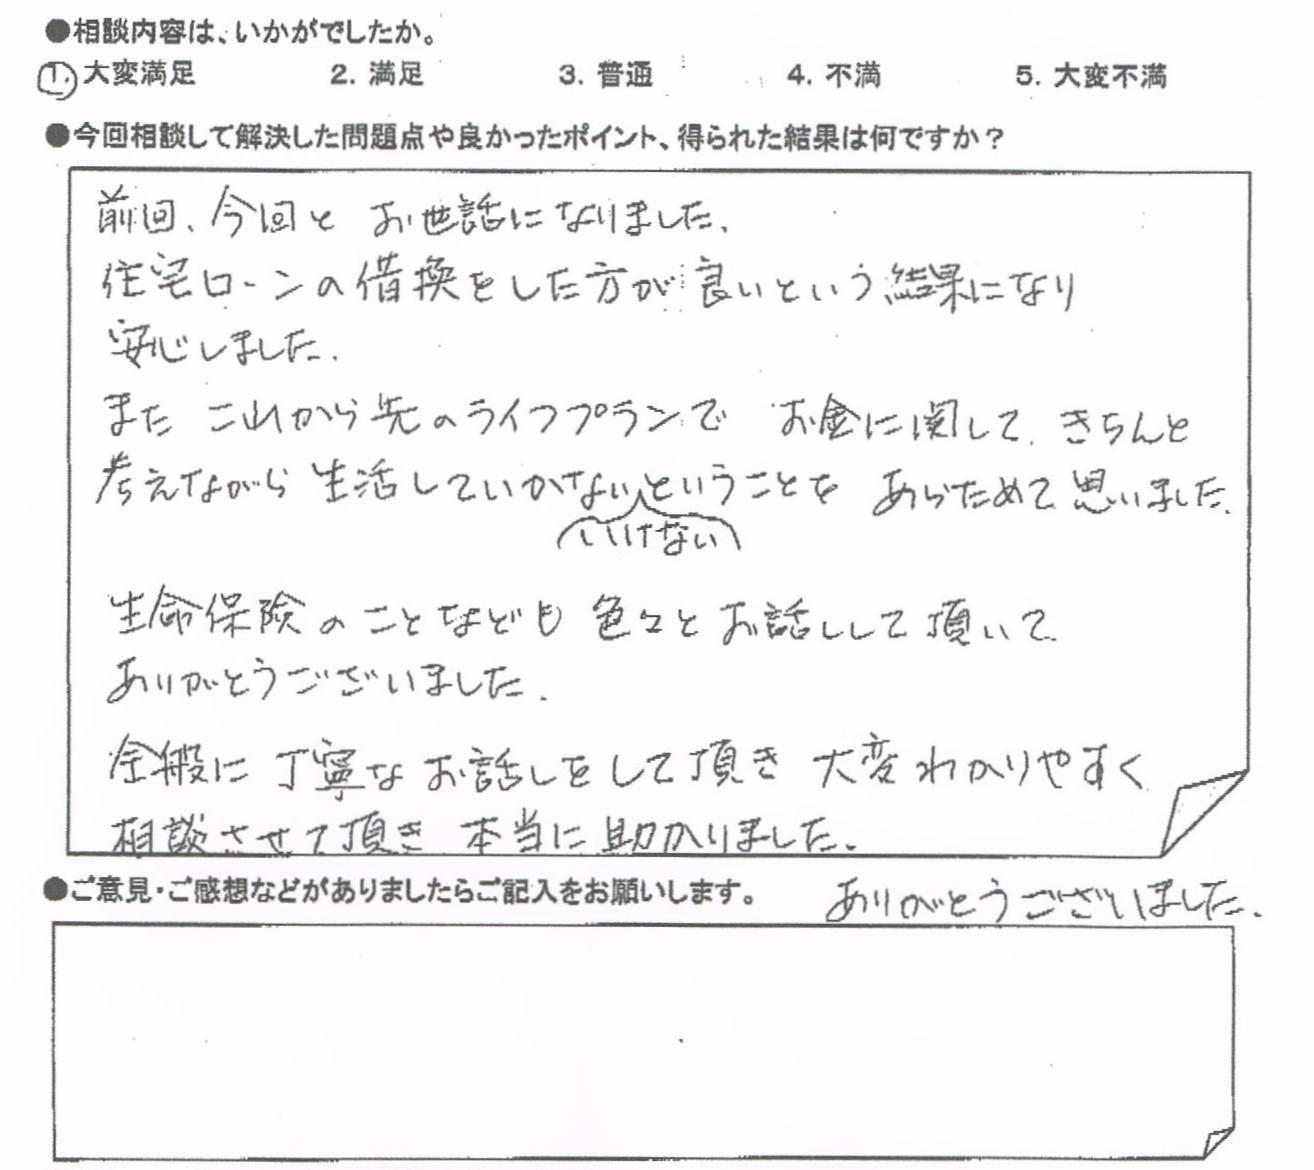 ●相談内容は、いかがでしたか。
1. 大変満足 2. 満足 3. 普通 4. 不満 5. 大変不満
●今回相談して解決した問題点や良かったポイント、得られた結果は何ですか？
前回、今回と お世話になりました。
住宅ローンの借換をした方が良いという結果になり
安心しました。
また これから先のライフプランで お金に関して、きちんと
考えながら 生活していかないということを あらためて思いました。
いけない
生命保険のことなども 色々とお話しして頂いて
ありがとうございました。
全般に 丁寧なお話しをして頂き 大変わかりやすく
相談させて頂き 本当に助かりました。
●ご意見・ご感想などがありましたらご記入をお願いします。
ありがとうございました。